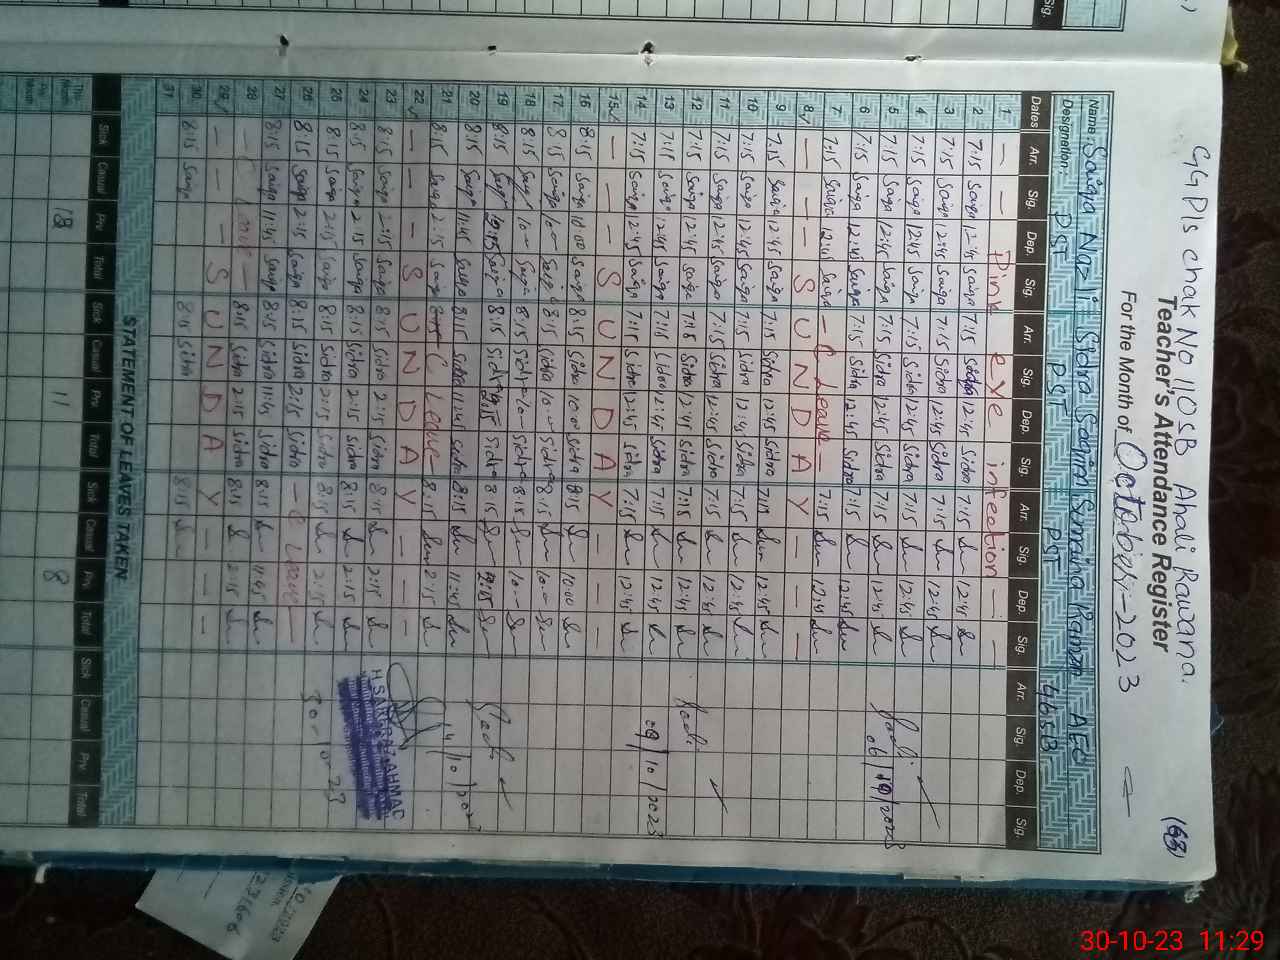 GGPIs chak No 110sB Ahali Rawana.
(63)
Teacher's Attendance Register
For the Month of October:-2023
Name: Saiqa Naz Sidra Saghir Sumaira Ramzan AEO
Designation: PST PST PST 46sB
Dates Arr. Sig. Dep. Sig. Arr. Sig. Dep. Sig. Arr. Sig. Dep. Sig. Arr. Sig. Dep. Sig.
1 — — Pink eye infection — —
2 7:15 Saiqa 12:45 Saiqa 7:15 Sidra 12:45 Sidra 7:15 12:45
3 7:15 Saiqa 12:45 Saiqa 7:15 Sidra 12:45 Sidra 7:15 12:45
4 7:15 Saiqa 12:45 Saiqa 7:15 Sidra 12:45 Sidra 7:15 12:45
5 7:15 Saiqa 12:45 Saiqa 7:15 Sidra 12:45 Sidra 7:15 12:45
6 7:15 Saiqa 12:45 Saiqa 7:15 Sidra 12:45 Sidra 7:15 12:45
7 7:15 Saiqa 12:45 Saiqa — C Leave — 7:15 12:45
8 — — — S U N D A Y — — —
9 7:15 Saiqa 12:45 Saiqa 7:15 Sidra 12:45 Sidra 7:15 12:45
10 7:15 Saiqa 12:45 Saiqa 7:15 Sidra 12:45 Sidra 7:15 12:45
11 7:15 Saiqa 12:45 Saiqa 7:15 Sidra 12:45 Sidra 7:15 12:45
12 7:15 Saiqa 12:45 Saiqa 7:15 Sidra 12:45 Sidra 7:15 12:45
13 7:15 Saiqa 12:45 Saiqa 7:15 Sidra 12:45 Sidra 7:15 12:45
14 7:15 Saiqa 12:45 Saiqa 7:15 Sidra 12:45 Sidra 7:15 12:45 09/10/2023
15 — — — S U N D A Y — — —
16 8:15 Saiqa 10:00 Saiqa 8:15 Sidra 10:00 Sidra 8:15 10:00
17 8:15 Saiqa 10 — Saiqa 8:15 Sidra 10 — Sidra 8:15 10 —
18 8:15 Saiqa 10 — Saiqa 8:15 Sidra 10 — Sidra 8:15 10 —
19 8:15 Saiqa 2:15 Saiqa 8:15 Sidra 2:15 Sidra 8:15 2:15
20 8:15 Saiqa 11:45 Saiqa 8:15 Sidra 11:45 Sidra 8:15 11:45
21 8:15 Saiqa 2:15 Saiqa C Leave 8:15 2:15
22 — — — S U N D A Y — — —
23 8:15 Saiqa 2:15 Saiqa 8:15 Sidra 2:15 Sidra 8:15 2:15
24 8:15 Saiqa 2:15 Saiqa 8:15 Sidra 2:15 Sidra 8:15 2:15
25 8:15 Saiqa 2:15 Saiqa 8:15 Sidra 2:15 Sidra 8:15 2:15 30-10-23
26 8:15 Saiqa 2:15 Saiqa 8:15 Sidra 2:15 Sidra — C Leave —
27 8:15 Saiqa 11:45 Saiqa 8:15 Sidra 11:45 Sidra 8:15 11:45
28 — C Leave — 8:15 Sidra 2:15 Sidra 8:15 2:15
29 — — — S U N D A Y — — —
30 8:15 Saiqa 8:15 Sidra 8:15
31
STATEMENT OF LEAVES TAKEN
Sick Casual Prv Total Sick Casual Prv Total Sick Casual Prv Total Sick Casual Prv Total
This Month
Pre Month 18 11 8
30-10-23 11:29